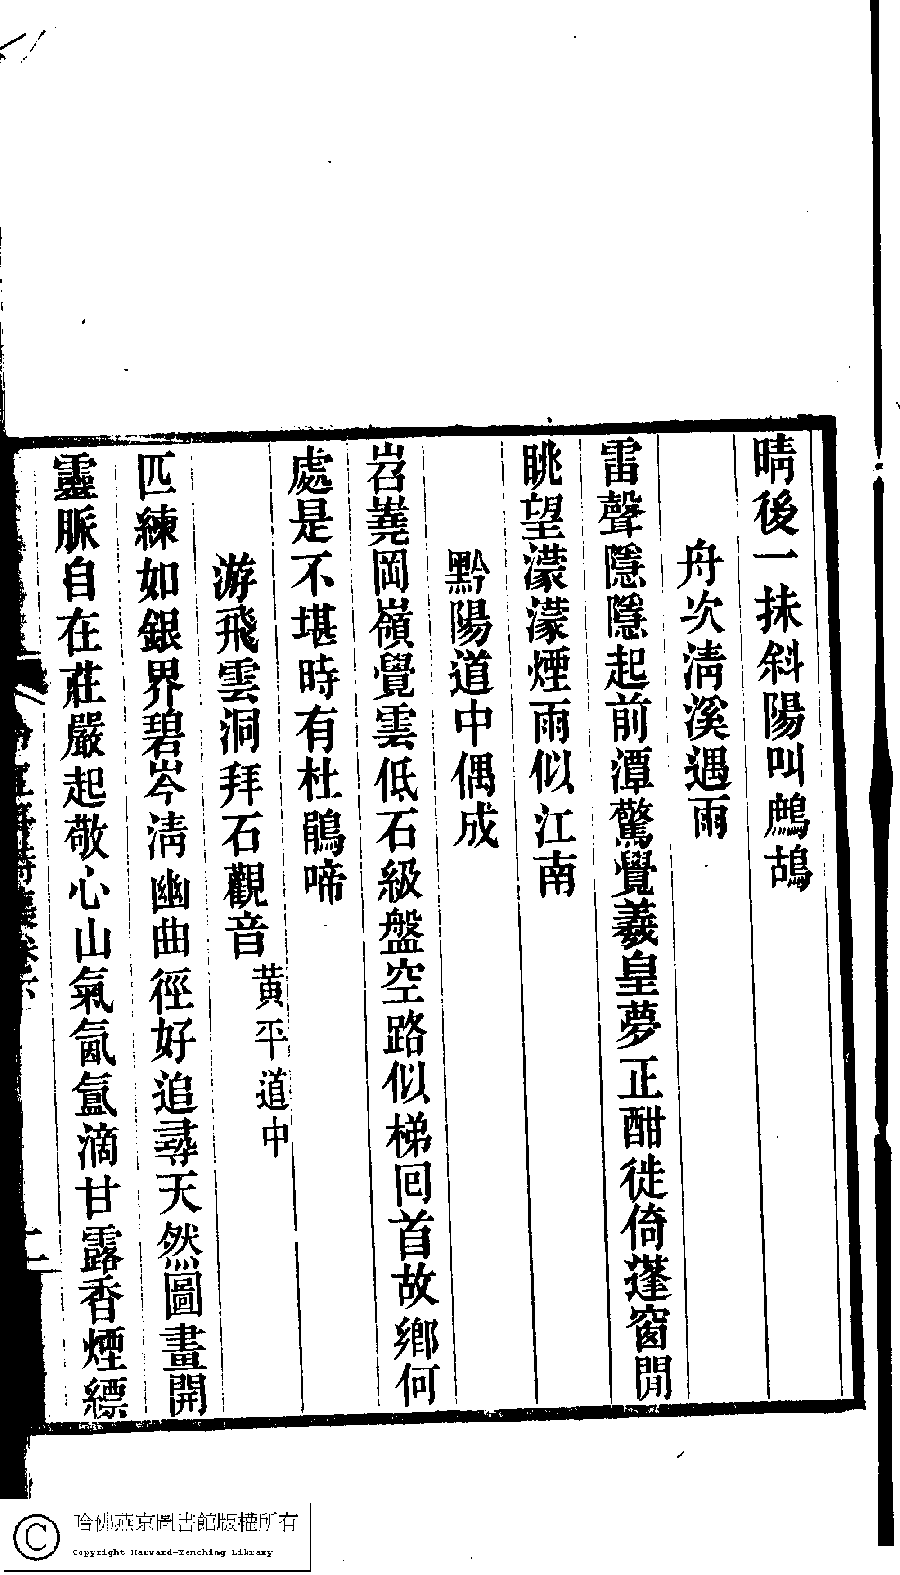 晴後一抹斜陽叫鷓鴣
舟次清溪遇雨
雷聲隱隱起前潭驚覺羲皇夢正酣徙倚蓬窗閒
眺望濛濛煙雨似江南
黔陽道中偶成
岧嶤岡嶺覺雲低石級盤空路似梯回首故鄉何
處是不堪時有杜鵑啼
游飛雲洞拜石觀音黃平道中
匹練如銀界碧岑清幽曲徑好追尋天然圖畫開
靈脈自在莊嚴起敬心山氣氤氳滴甘露香煙縹
詩集卷六
哈佛燕京圖書館版權所有
Copyright Harvard-Yenching Library